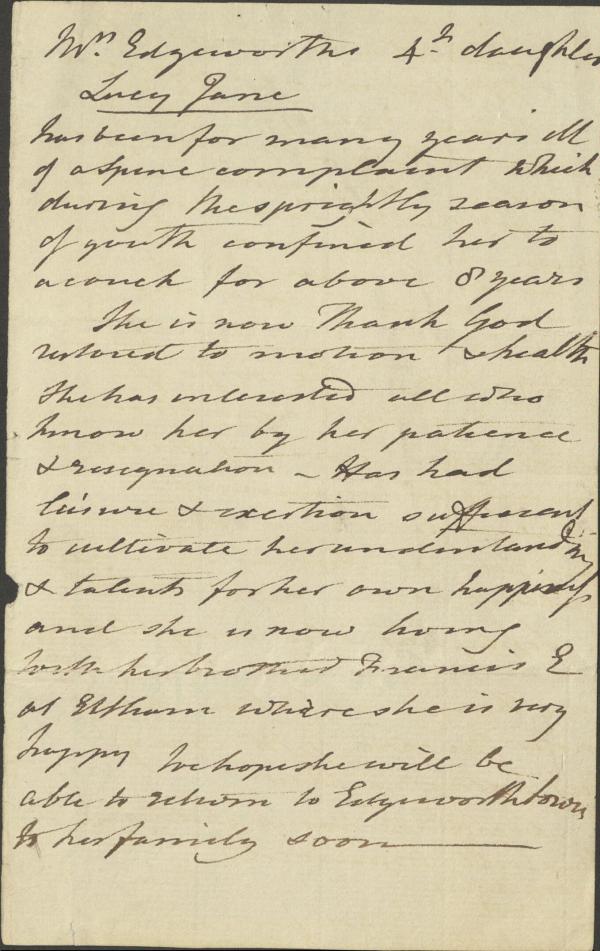 Mrs Edgeworths 4th daughter
Lucy Jane
has been for many years ill
of a spine complaint which
during the sprightly season
of youth confined her to
a couch for above 8 years
She is now Thank God
restored to motion & health
She has interested all who
know her by her patience
& resignation - Has had
leisure & exertion sufficient
to cultivate her understanding
& talents for her own happiness
and she is now living
with her brother Francis E
at Eltham where she is very
happy We hope she will be
able to return to Edgeworthtown
to her family soon